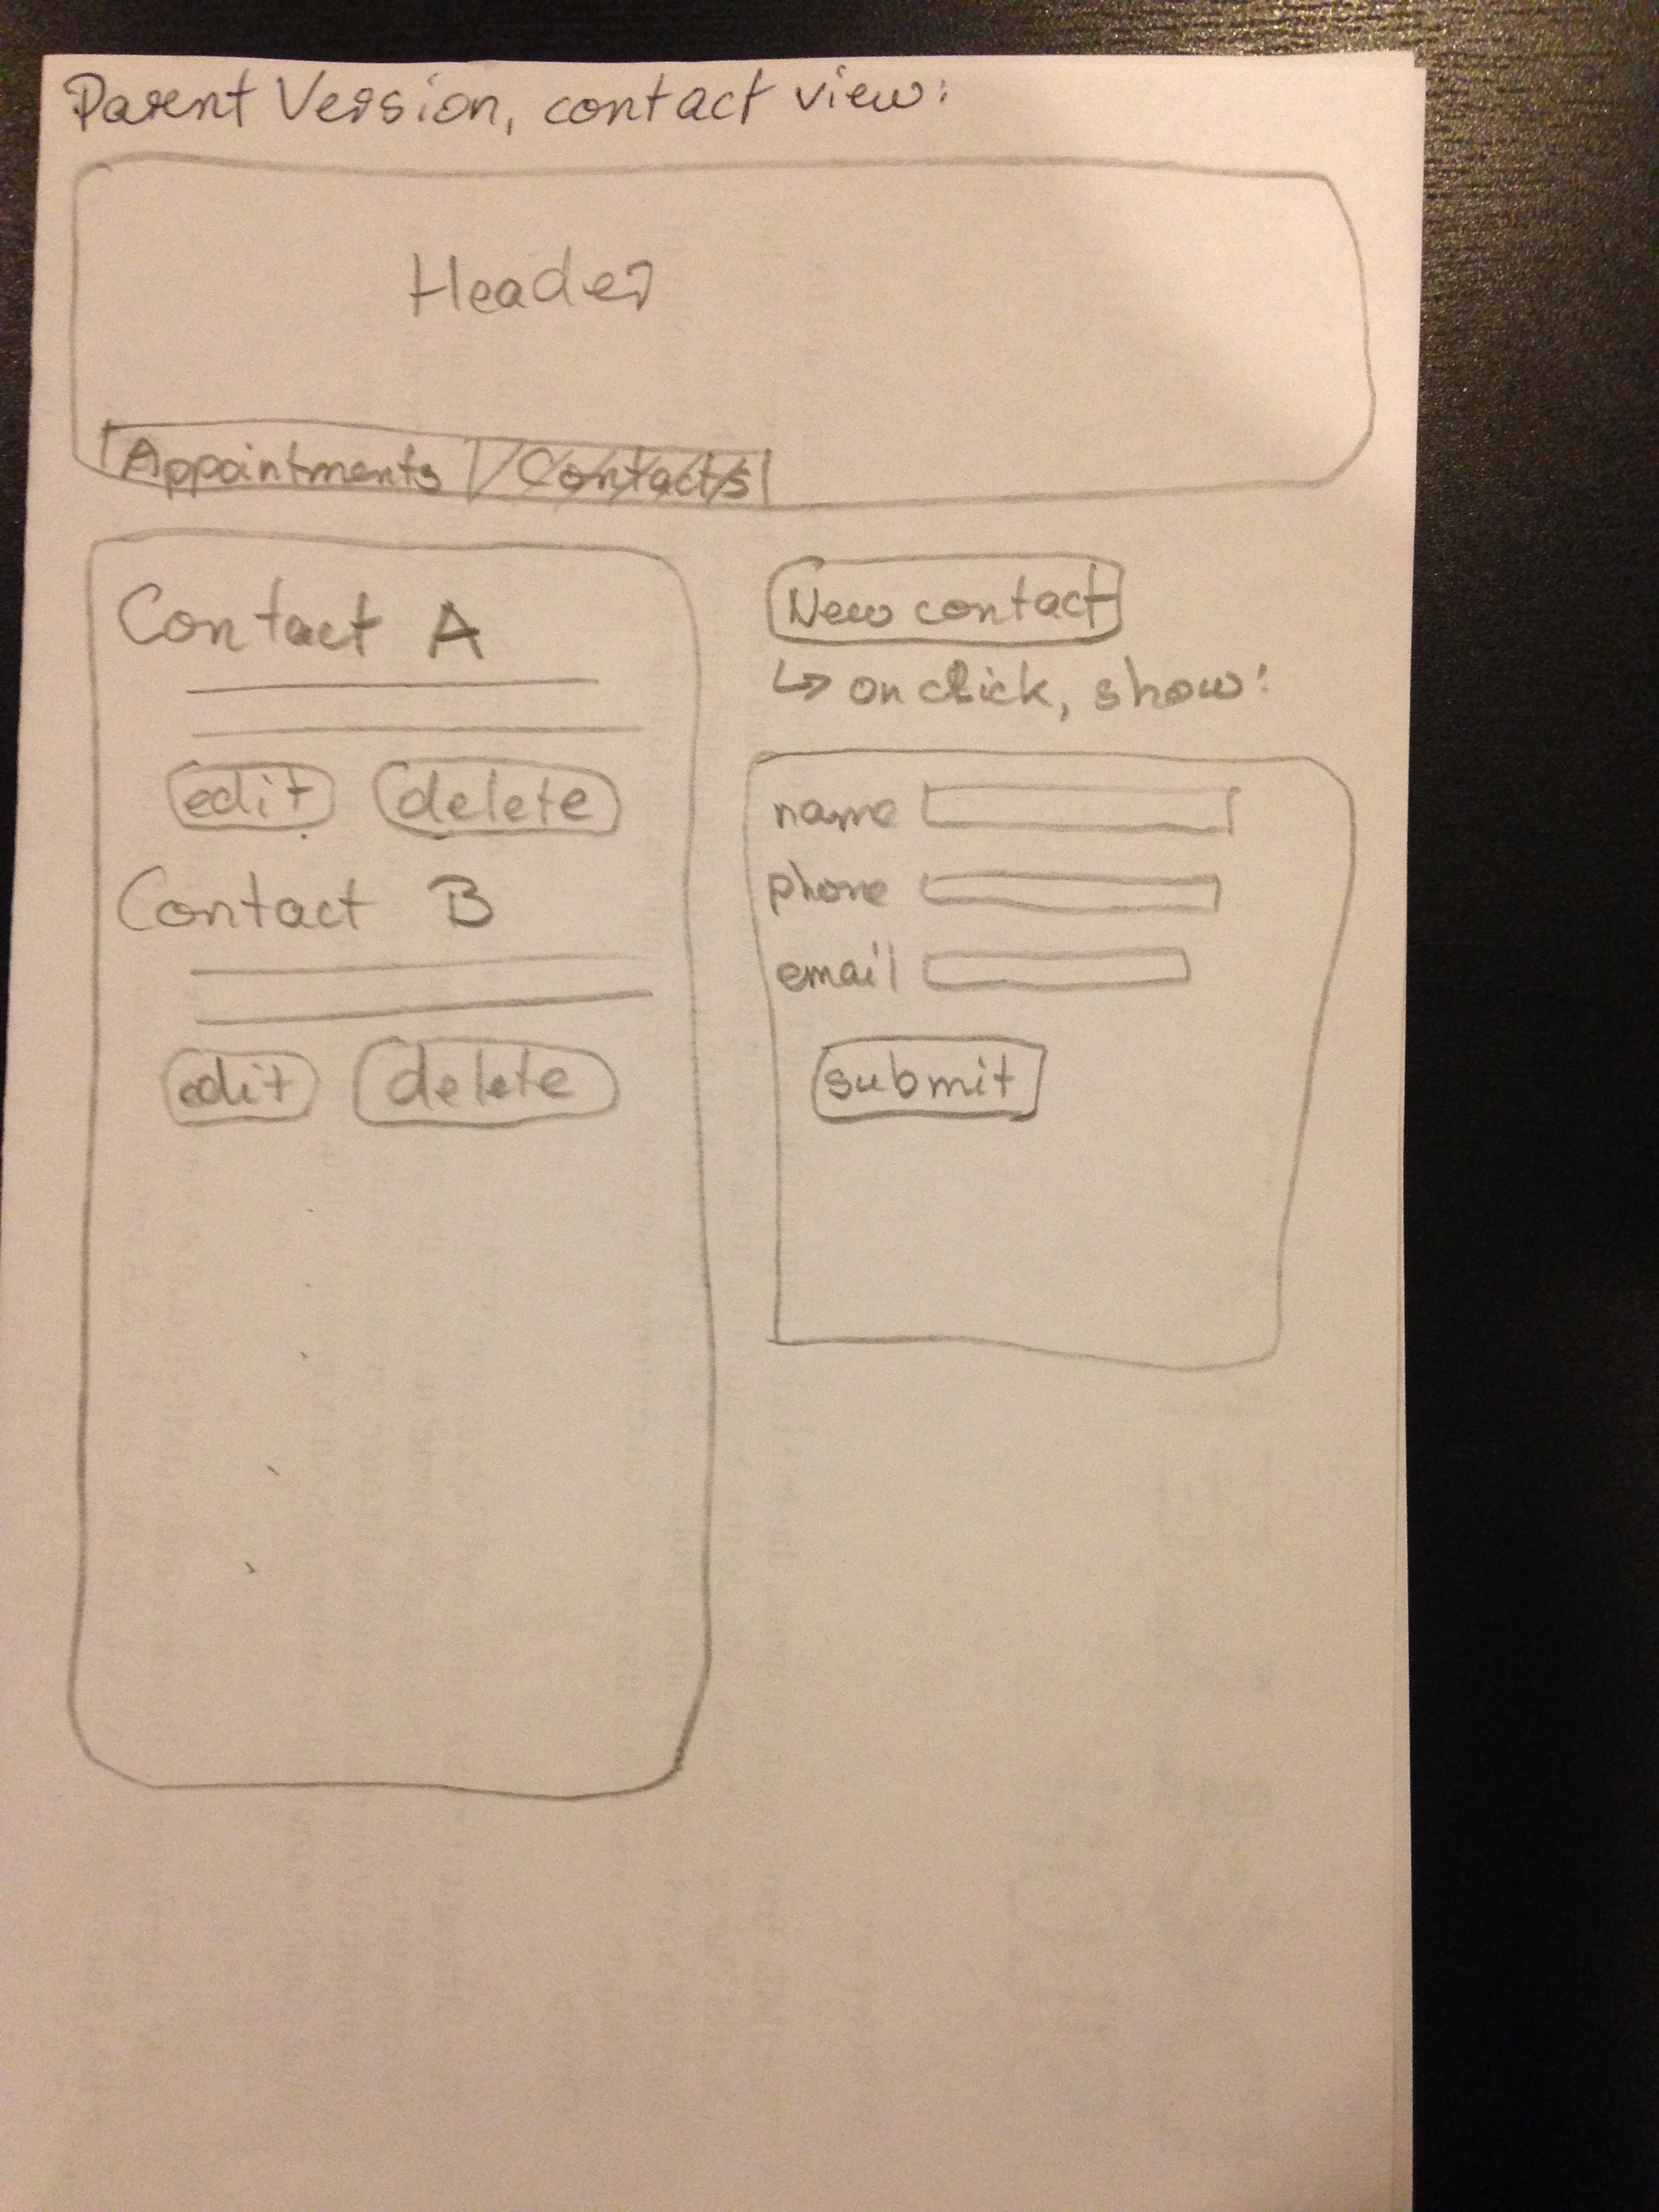 Parent Version, contact view:
Header
Appointments
Contacts
Contact A
edit delete
Contact B
edit delete
New contact
↳ on click, show:
name
phone
email
submit